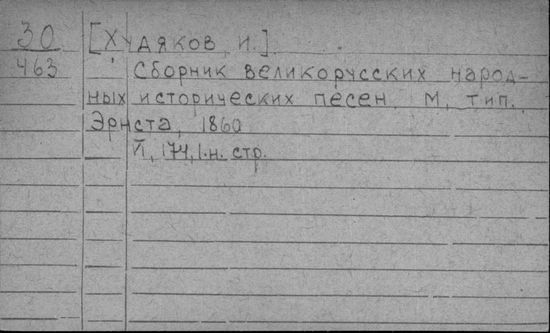 30 [Худяков, И.].
463 Сборник великорусских народ-
ных исторических песен. М., тип.
Эрнста, 1860
II, 174, 1.н. стр.